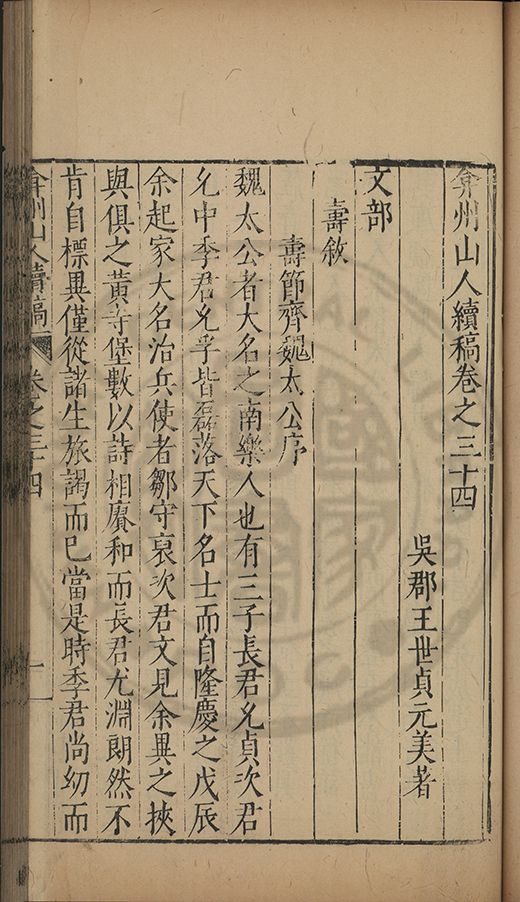 弇州山人續稿卷之三十四
吳郡王世貞元美著
文部
壽敘
壽節齊魏太公序
魏太公者大名之南樂人也有三子長君允貞次君
允中季君允孚皆磊落天下名士而自隆慶之戊辰
余起家大名治兵使者鄒守裒次君文見余異之挾
與俱之黃寺堡數以詩相賡和而長君尤淵朗然不
肯自標異僅從諸生旅謁而已當是時季君尚幼而
弇州山人續稿 卷之三十四 一